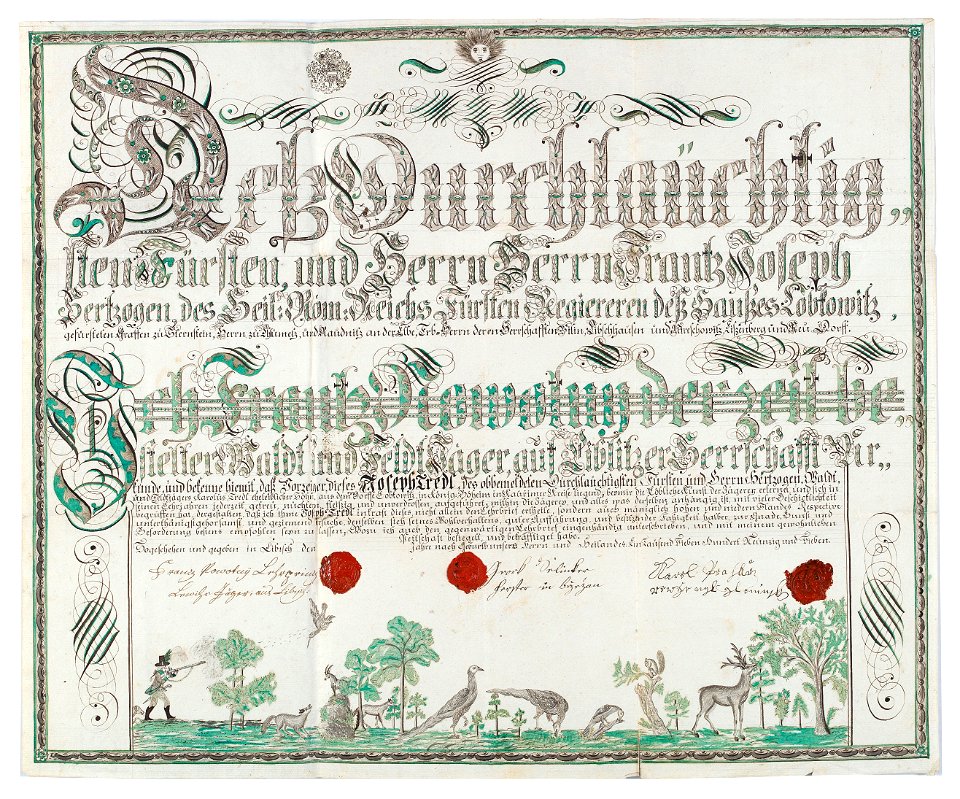 Deß Durchläuchtig„
sten Fürsten, und Herrn Herrn Frantz Joseph
Hertzogen, des Heil: Röm: Reichs Fürsten Regiereren deß Haußes Lobkowitz,
gefürsteten Graffen zu Sternstein, Herrn zu Chlumetz, und Raudnitz an der Elbe, Erb-Herrn deren Herrschafften Bilin, Liebshausen und Eisenberg und Neu-Dorff.
Ich Frantz Nowotny der zeit be„
stelter Waldt und Feldt Jäger, auf Herrschafft Vir„
Kunde, und bekenne hiemit, daß Vorzeiger dieses Joseph Tredl, des obbemeldeten Durchlauchtigsten Fürsten und Herrn Hertzogen, Waldt,
und Wildjägers Carolus Tredl ehelichter Sohn, aus dem in Königr. Böheim im Kaurzimer Kreise bey mir die Löbliche Kunst der Jägerey erlernt, und sich in
seinen Lehrjahren jederzeit getreu, züchtig, fleißig, und unverdrossen, aufgeführt, mithin die Jägerey, und alles was derselben anhängig ist, mit vieler Geschicklichkeit
begriffen hat, dergestalten, daß ich Ihme Joseph Tredl kraft dieses, nicht allein den Lehrbrief ertheile, sondern auch männiglich hohen und niedern Standes Respective
unterthänigst gehorsamst, und geziemend ersuche, denselben sich seines Wohlverhaltens, guter Aufführung, und besitzender Fähigkeit halber, zur Gnade, Gunst, und
Beförderung bestens empfohlen seyn zu lassen, Wenn ich auch den gegenwärtigen Lehrbrief eigenhändig unterschrieben, und mit meinem gewöhnlichen
Pettschaft besiegelt, und bekräfftiget habe.
So geschehen und gegeben in Libisch den Jahre nach Geburt unsers Herrn und Heilandes Ein Tausend Sieben Hundert Neunzig und Sieben.
Franz Nowotny
Jäger aus
Förster in
Karel